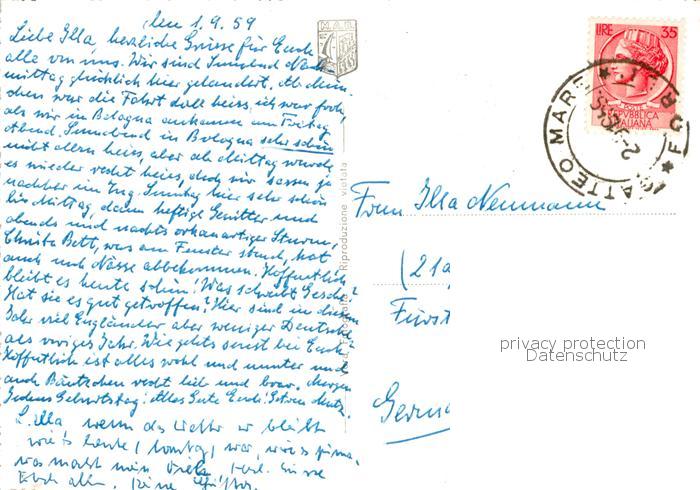 den 1.9.59
Liebe Illa, herzliche Grüsse für Euch
alle von uns. Wir sind Sonntag Nach
mittag glücklich hier gelandet. Ab Mün-
chen war die Fahrt doll heiss, ich war froh,
als wir in Bologna ankamen am Freitag
Abend. Sonnabend in Bologna sehr schön
nicht allzu heiss, aber ab Mittag wurde
es wieder recht heiss, doch wir sassen ja
nachher im Zug. Sonntag hier sehr schön
bis Mittag, dann heftige Gewitter und
abends und nachts orkanartiger Sturm,
Christa Bett, was am Fenster stand, hat
auch noch Nässe abbekommen. Hoffentlich
bleibt es heute schön! Was schreibt
Hat sie es gut getroffen? Hier sind in diesem
Jahr viel Engländer, aber weniger Deutsche
als voriges Jahr. Wie gehts sonst bei Euch?
Hoffentlich ist alles wohl und munter und
auch recht lieb und brav. Morgen
Geburtstag! Alles Gute Euch!
L. Illa, wenn das Wetter so bleibt
wie's heute war, wär's prima,
was macht mein
Euch allen.
M.A.R.
LIRE 35
POSTE
REPVBBLICA
ITALIANA
GATTEO MARE * FO
Riproduzione vietata
Frau Illa Neumann
(21a
Fürst
Germ
privacy protection
Datenschutz